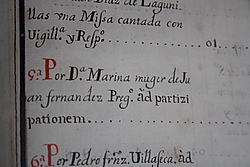 uan Diaz de Laguni
llas yna Missa cantada con
Vigill.ª y Resp.º 01.
5.ª Por D.ª Marina muger de Ju
an fernandez Preg.º ad partizi
pationem.
6.ª Por Pedro frñz. Villaseca, ad